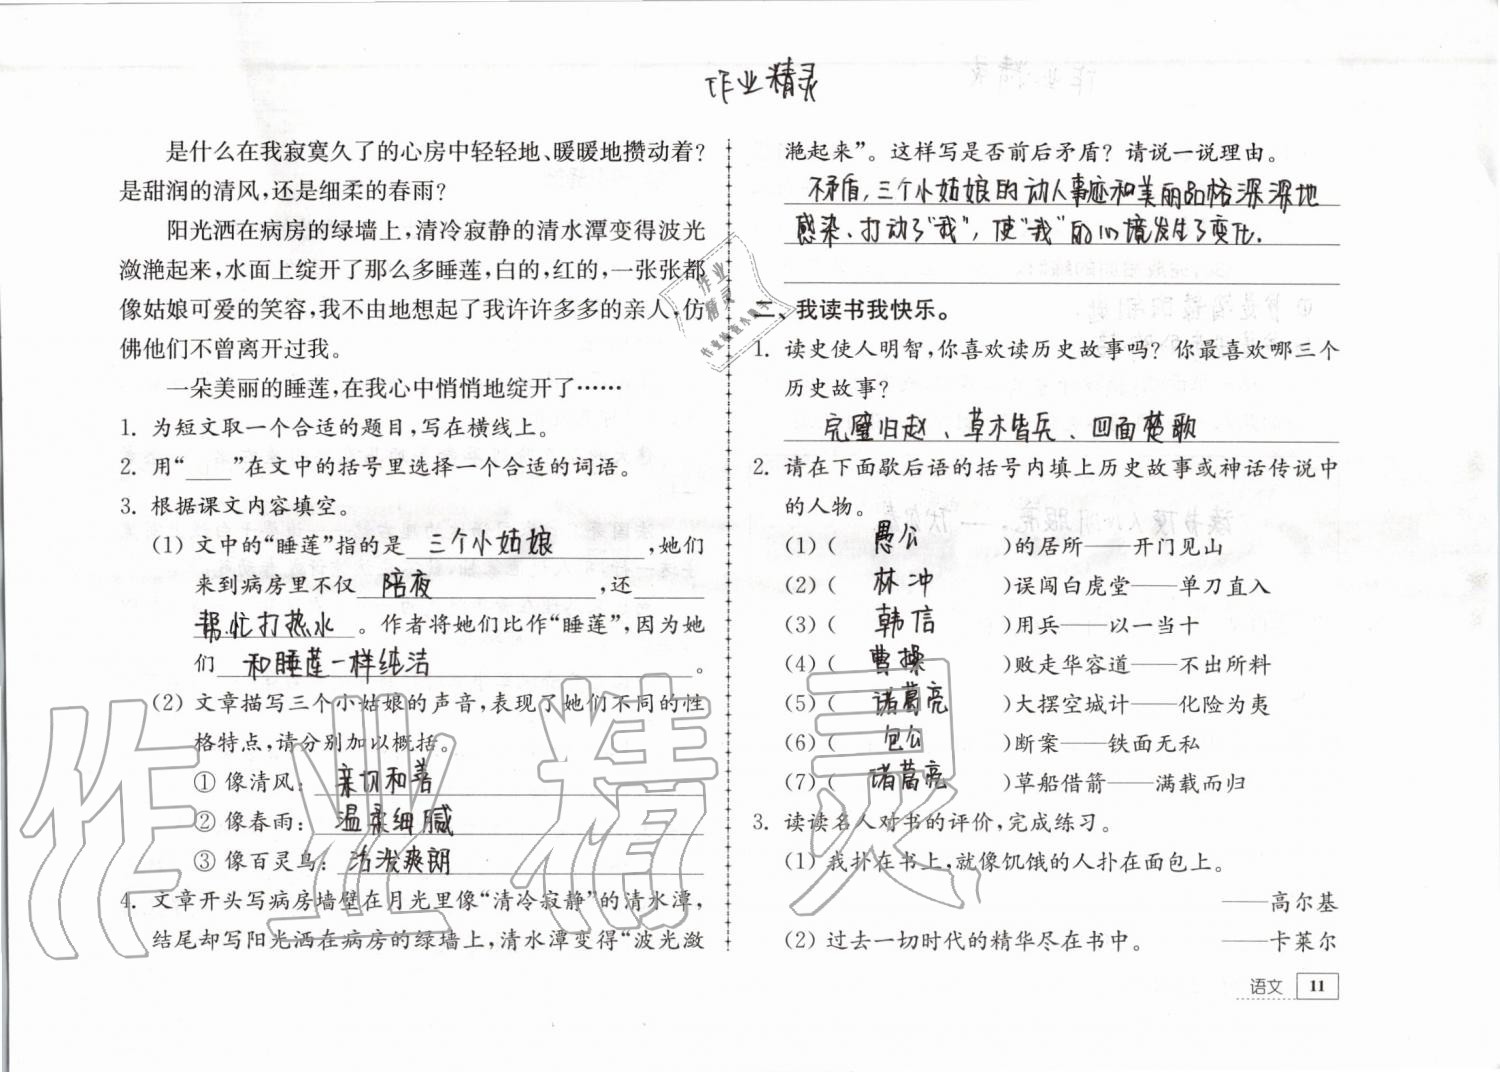 作业精灵
是什么在我寂寞久了的心房中轻轻地、暖暖地攒动着?
是甜润的清风,还是细柔的春雨?
阳光洒在病房的绿墙上,清冷寂静的清水潭变得波光
潋滟起来,水面上绽开了那么多睡莲,白的,红的,一张张都
像姑娘可爱的笑容,我不由地想起了我许许多多的亲人,仿
佛他们不曾离开过我。
一朵美丽的睡莲,在我心中悄悄地绽开了……
1. 为短文取一个合适的题目,写在横线上。
2. 用“____”在文中的括号里选择一个合适的词语。
3. 根据课文内容填空。
(1) 文中的“睡莲”指的是 三个小姑娘 ,她们
来到病房里不仅 陪夜 ,还
帮忙打热水 。作者将她们比作“睡莲”,因为她
们 和睡莲一样纯洁 。
(2) 文章描写三个小姑娘的声音,表现了她们不同的性
格特点,请分别加以概括。
① 像清风: 亲切和善
② 像春雨: 温柔细腻
③ 像百灵鸟: 活泼爽朗
4. 文章开头写病房墙壁在月光里像“清冷寂静”的清水潭,
结尾却写阳光洒在病房的绿墙上,清水潭变得“波光潋
滟起来”。这样写是否前后矛盾? 请说一说理由。
不矛盾,三个小姑娘的动人事迹和美丽品格深深地
感染、打动了“我”,使“我”的心境发生了变化.
二、我读书我快乐。
1. 读史使人明智,你喜欢读历史故事吗? 你最喜欢哪三个
历史故事?
完璧归赵、草木皆兵、四面楚歌
2. 请在下面歇后语的括号内填上历史故事或神话传说中
的人物。
(1) ( 愚公 )的居所——开门见山
(2) ( 林冲 )误闯白虎堂——单刀直入
(3) ( 韩信 )用兵——以一当十
(4) ( 曹操 )败走华容道——不出所料
(5) ( 诸葛亮 )大摆空城计——化险为夷
(6) ( 包公 )断案——铁面无私
(7) ( 诸葛亮 )草船借箭——满载而归
3. 读读名人对书的评价,完成练习。
(1) 我扑在书上,就像饥饿的人扑在面包上。
——高尔基
(2) 过去一切时代的精华尽在书中。 ——卡莱尔
语文 11
作业精灵
作业
精灵